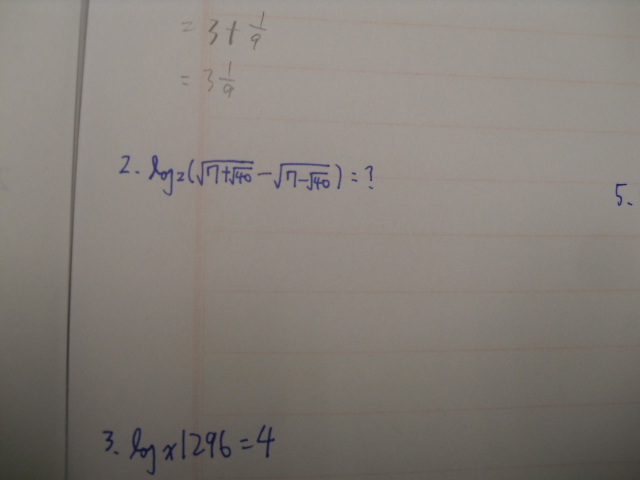 = 3 + 1/9
= 3 1/9
2. log₂(√(7+√40) - √(7-√40)) = ?
5.
3. logₓ1296 = 4